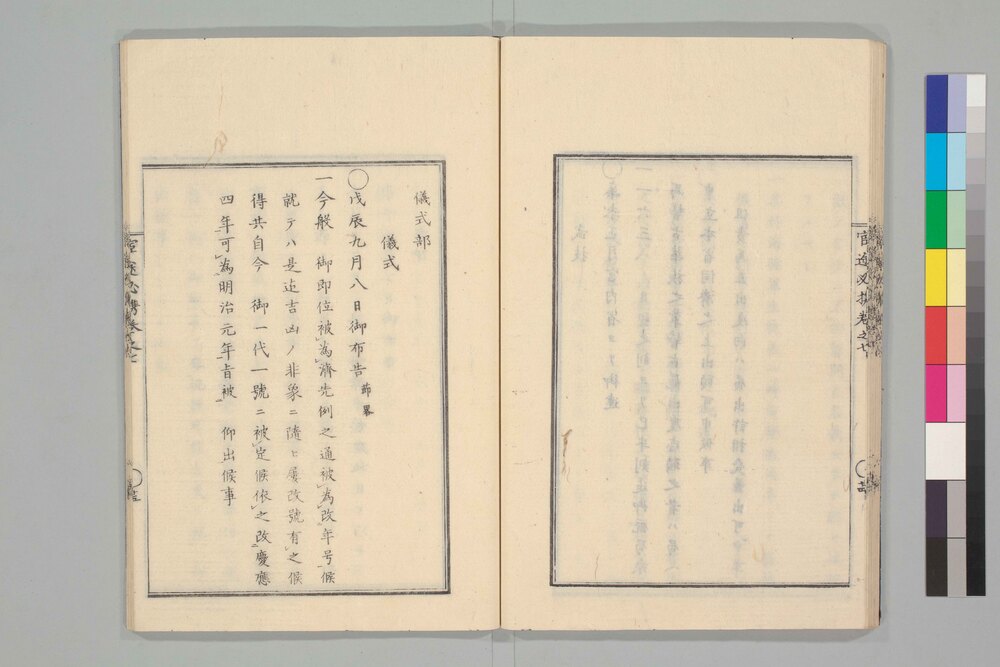 官途必携巻之七
儀式部
儀式
戊辰九月八日御布告 節畧
一今般 御即位被為濟先例之通被為改年号候
就テハ是迄吉凶ノ非象ニ隨ヒ屡改號有之候
得共自今 御一代一號ニ被定候依之改慶應
四年可為明治元年旨被 仰出候事
官途必携巻之七